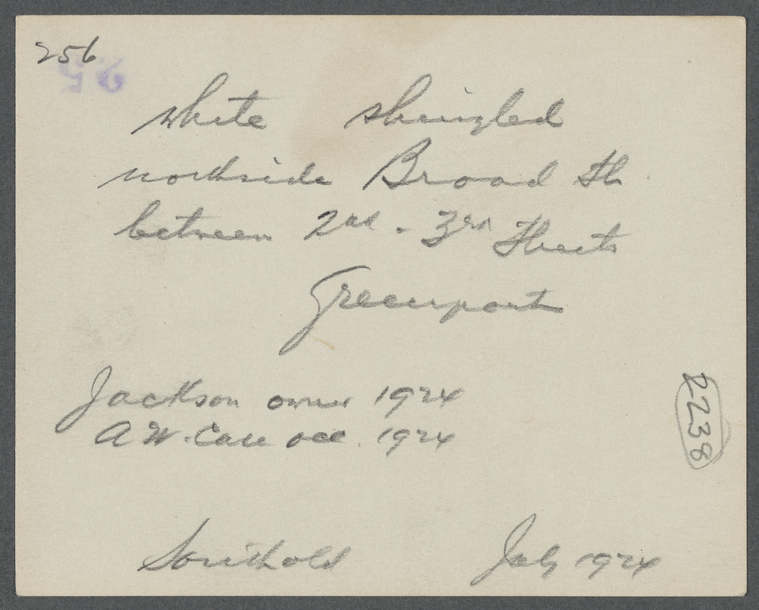 256
25
white shingled
northside Broad St.
between 2nd - 3rd Streets
Greenport
Jackson owner 1924
A W. Case occ. 1924
2238
Southold July 1924